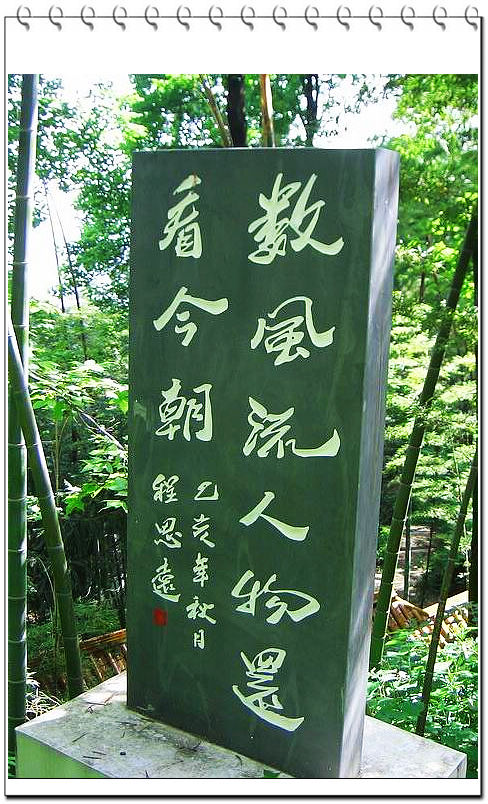 数風流人物還
看今朝
乙亥年秋月
程思遠